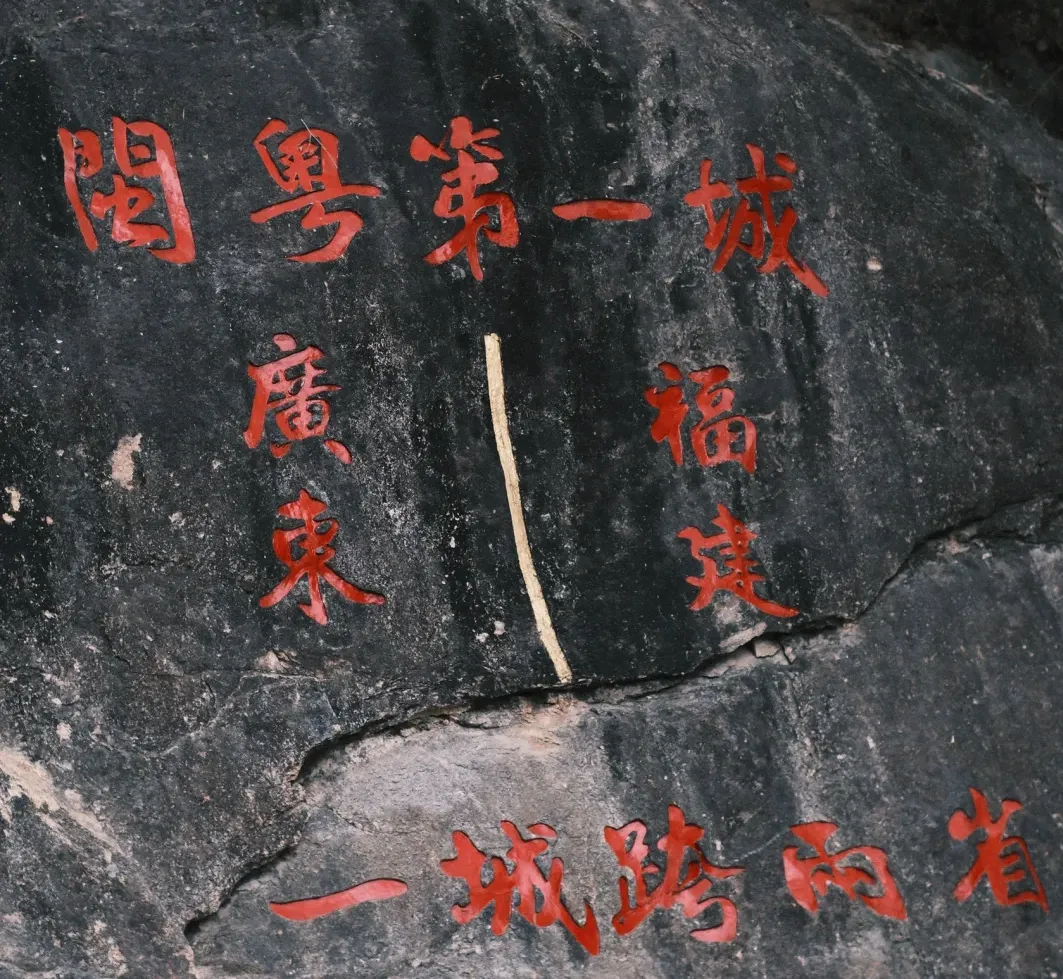 閩粵第一城
廣東
福建
一城跨兩省